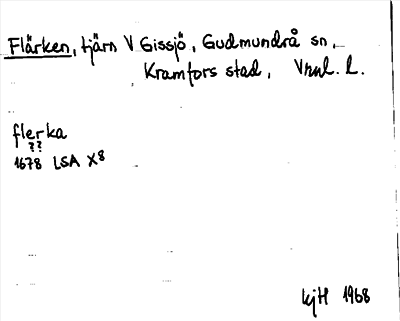 Flärken, tjärn V Gissjö, Gudmundrå sn,
Kramfors stad, Vnl. l.
flerka
??
1678 LSA X8
kjH 1968